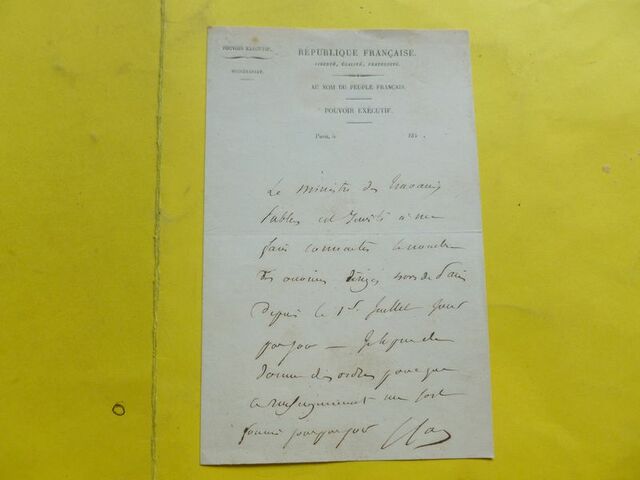 POUVOIR EXÉCUTIF.
RÉPUBLIQUE FRANÇAISE.
LIBERTÉ, ÉGALITÉ, FRATERNITÉ.
AU NOM DU PEUPLE FRANÇAIS.
POUVOIR EXÉCUTIF.
Paris, le 184 .
Le ministre des travaux
Publics est invité à me
faire connaitre le nombre
des ouvriers dirigés hors de Paris
depuis le 1er Juillet jour
par jour — Je le prie de
donner des ordres pour que
ce renseignement me soit
fourni jour par jour